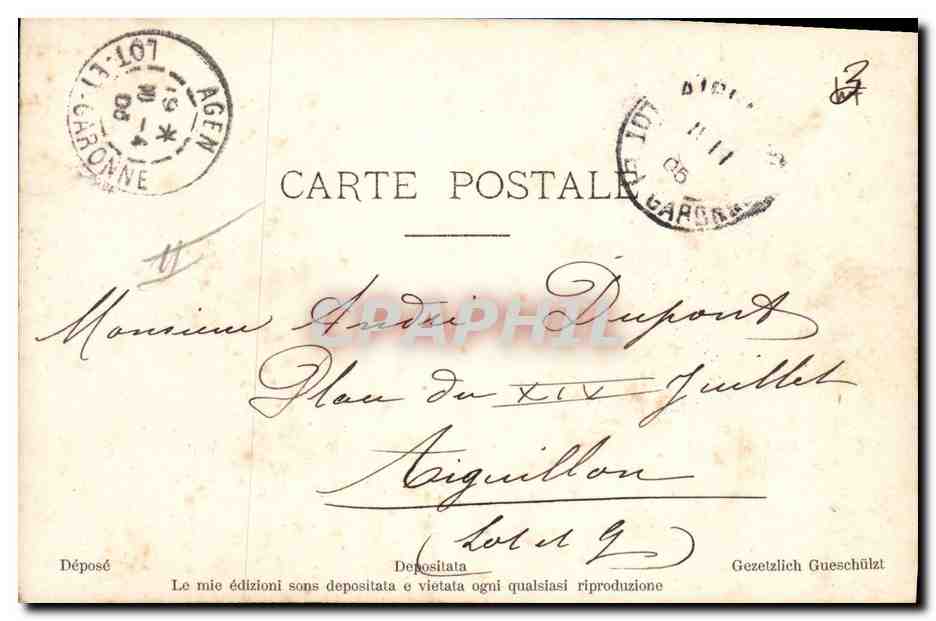 AGEN
LOT-ET-GARONNE
05
LOT ET
GARONNE
05
3
CARTE POSTALE
II
Monsieur André Dupont
CPAPHIL
Place du XIX Juillet
Aiguillon
(Lot et G)
Déposé Depositata Gezetzlich Gueschülzt
Le mie édizioni sons depositata e vietata ogni qualsiasi riproduzione